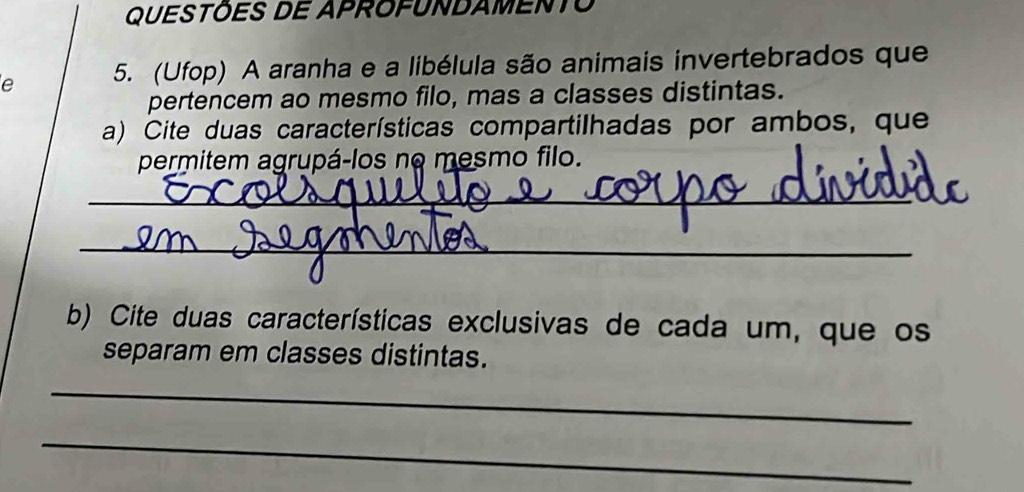 QUESTÕES DE APROFUNDAMENTO
e
5. (Ufop) A aranha e a libélula são animais invertebrados que
pertencem ao mesmo filo, mas a classes distintas.
a) Cite duas características compartilhadas por ambos, que
permitem agrupá-los no mesmo filo.
Excoesqueleto e corpo dividido
em segmentos
b) Cite duas características exclusivas de cada um, que os
separam em classes distintas.